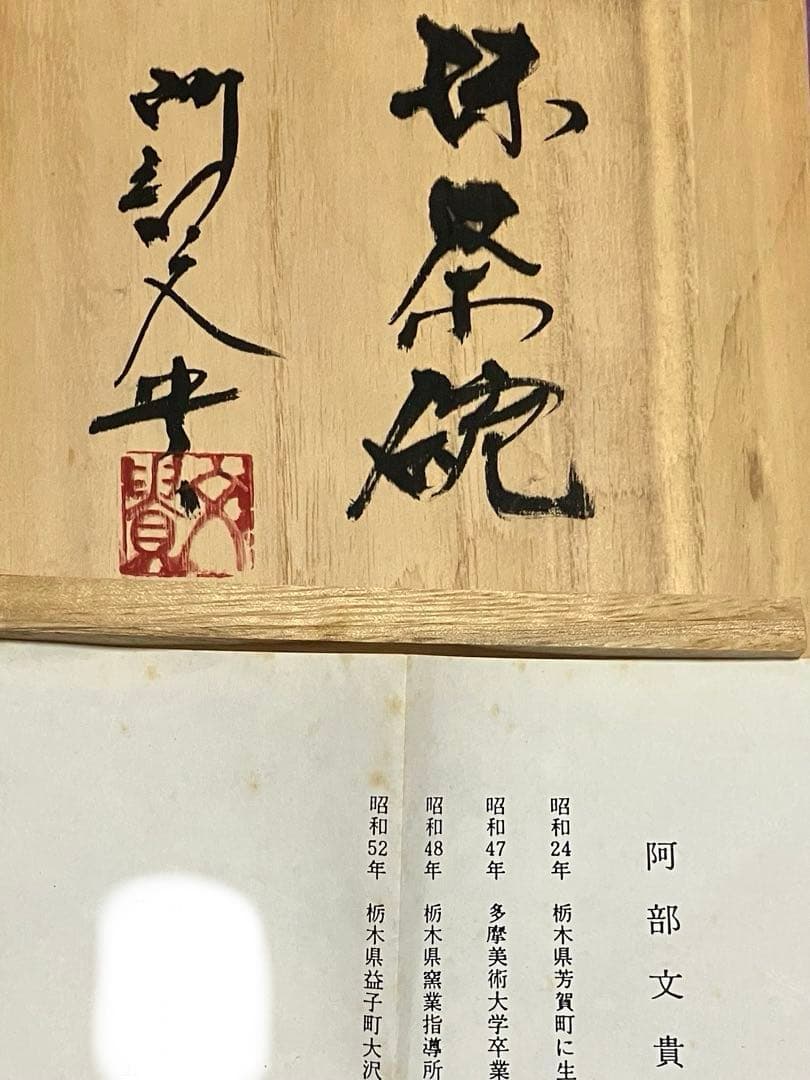 抹茶碗
阿部文貴
文貴
阿部文貴
昭和24年 栃木県芳賀町に生
昭和47年 多摩美術大学卒業
昭和48年 栃木県窯業指導所
昭和52年 栃木県益子町大沢